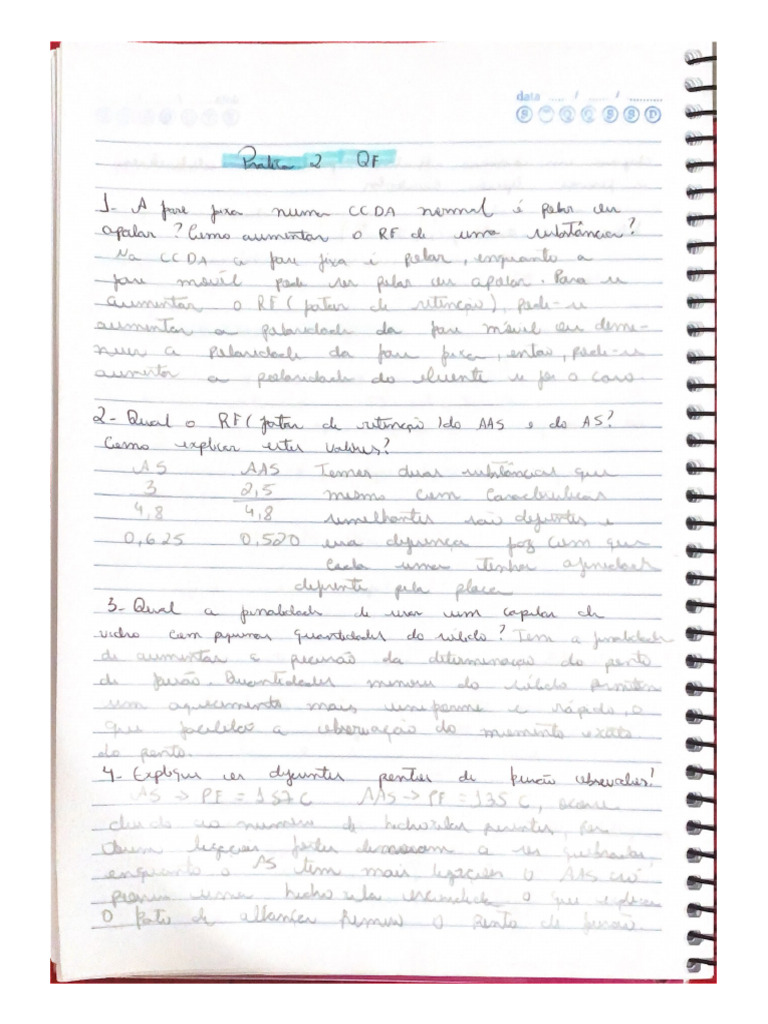 data ..... / ..... / .........
S T Q Q S S D
Prática 2 QF
1- A fase fixa numa CCDA normal é polar ou
apolar? Como aumentar o RF de uma substância?
Na CCDA a fase fixa é polar, enquanto a
fase móvel pode ser polar ou apolar. Para se
aumentar o RF (fator de retenção), pode-se
aumentar a polaridade da fase móvel ou demi-
nuir a polaridade da fase fixa, então, pode-se
aumentar a polaridade do eluente se for o caso.
2- Qual o RF (fator de retenção) do AAS e do AS?
Como explicar estes valores?
AS AAS Temos duas substâncias que
3 2,5 mesmo com características
4,8 4,8 semelhantes são diferentes e
0,625 0,520 essa diferença faz com que
cada uma tenha afinidade
diferente pela placa
3- Qual a finalidade de usar um capilar de
vidro com pequenas quantidades do sólido? Tem a finalidade
de aumentar a precisão da determinação do ponto
de fusão. Quantidades menores do sólido permitem
um aquecimento mais uniforme e rápido, o
que facilita a observação do momento exato
do ponto.
4- Explique os diferentes pontos de fusão observados!
AS → PF = 157 C AAS → PF = 135 C, ocorre
devido ao número de hidroxilas presentes, por
serem ligações fortes demoram a ser quebradas,
enquanto o AS tem mais ligações o AAS só
possui uma hidroxila o que explica
O fato de alcançar o Ponto de fusão